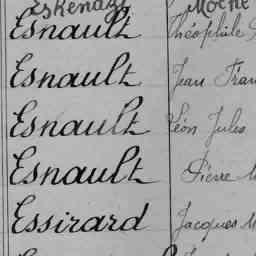 Eskenazi
Esnault Théophile
Esnault Jean Fran
Esnault Léon Jules
Esnault Pierre
Essirard Jacques